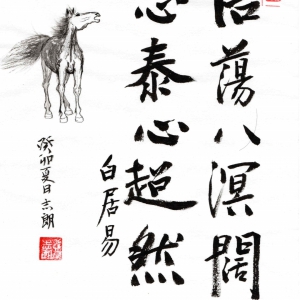 蕩八溟闊
泰心超然
白居易
癸卯夏日志朗